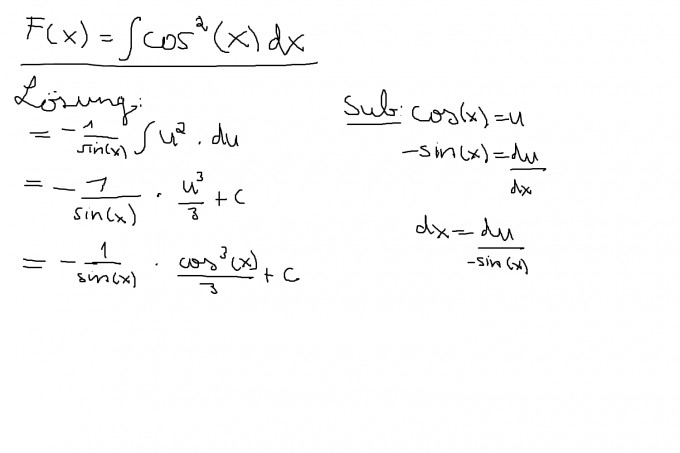 F(x) = ∫cos²(x) dx
Lösung:
= -1/sin(x) ∫ u² · du
= -1/sin(x) · u³/3 + C
= -1/sin(x) · cos³(x)/3 + C
Sub: cos(x) = u
-sin(x) = du/dx
dx = du/-sin(x)